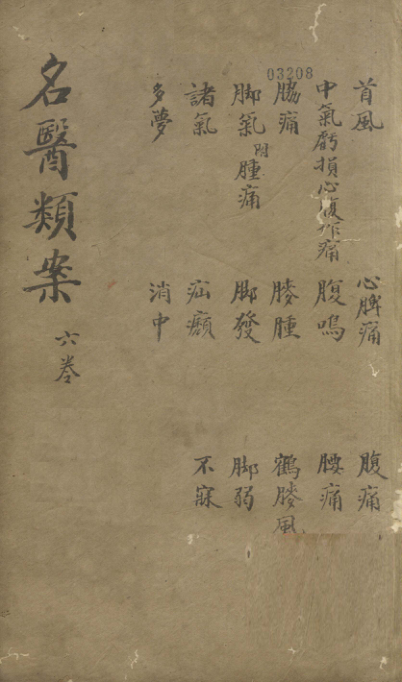 03208
首風 心脾痛 腹痛
中氣虧損心腹作痛 腹鳴 腰痛
脇痛 膝腫 鶴膝風
脚氣附腫痛 脚發 脚弱
諸氣 疝㿗 不寐
多夢 消中
名醫類案 六卷